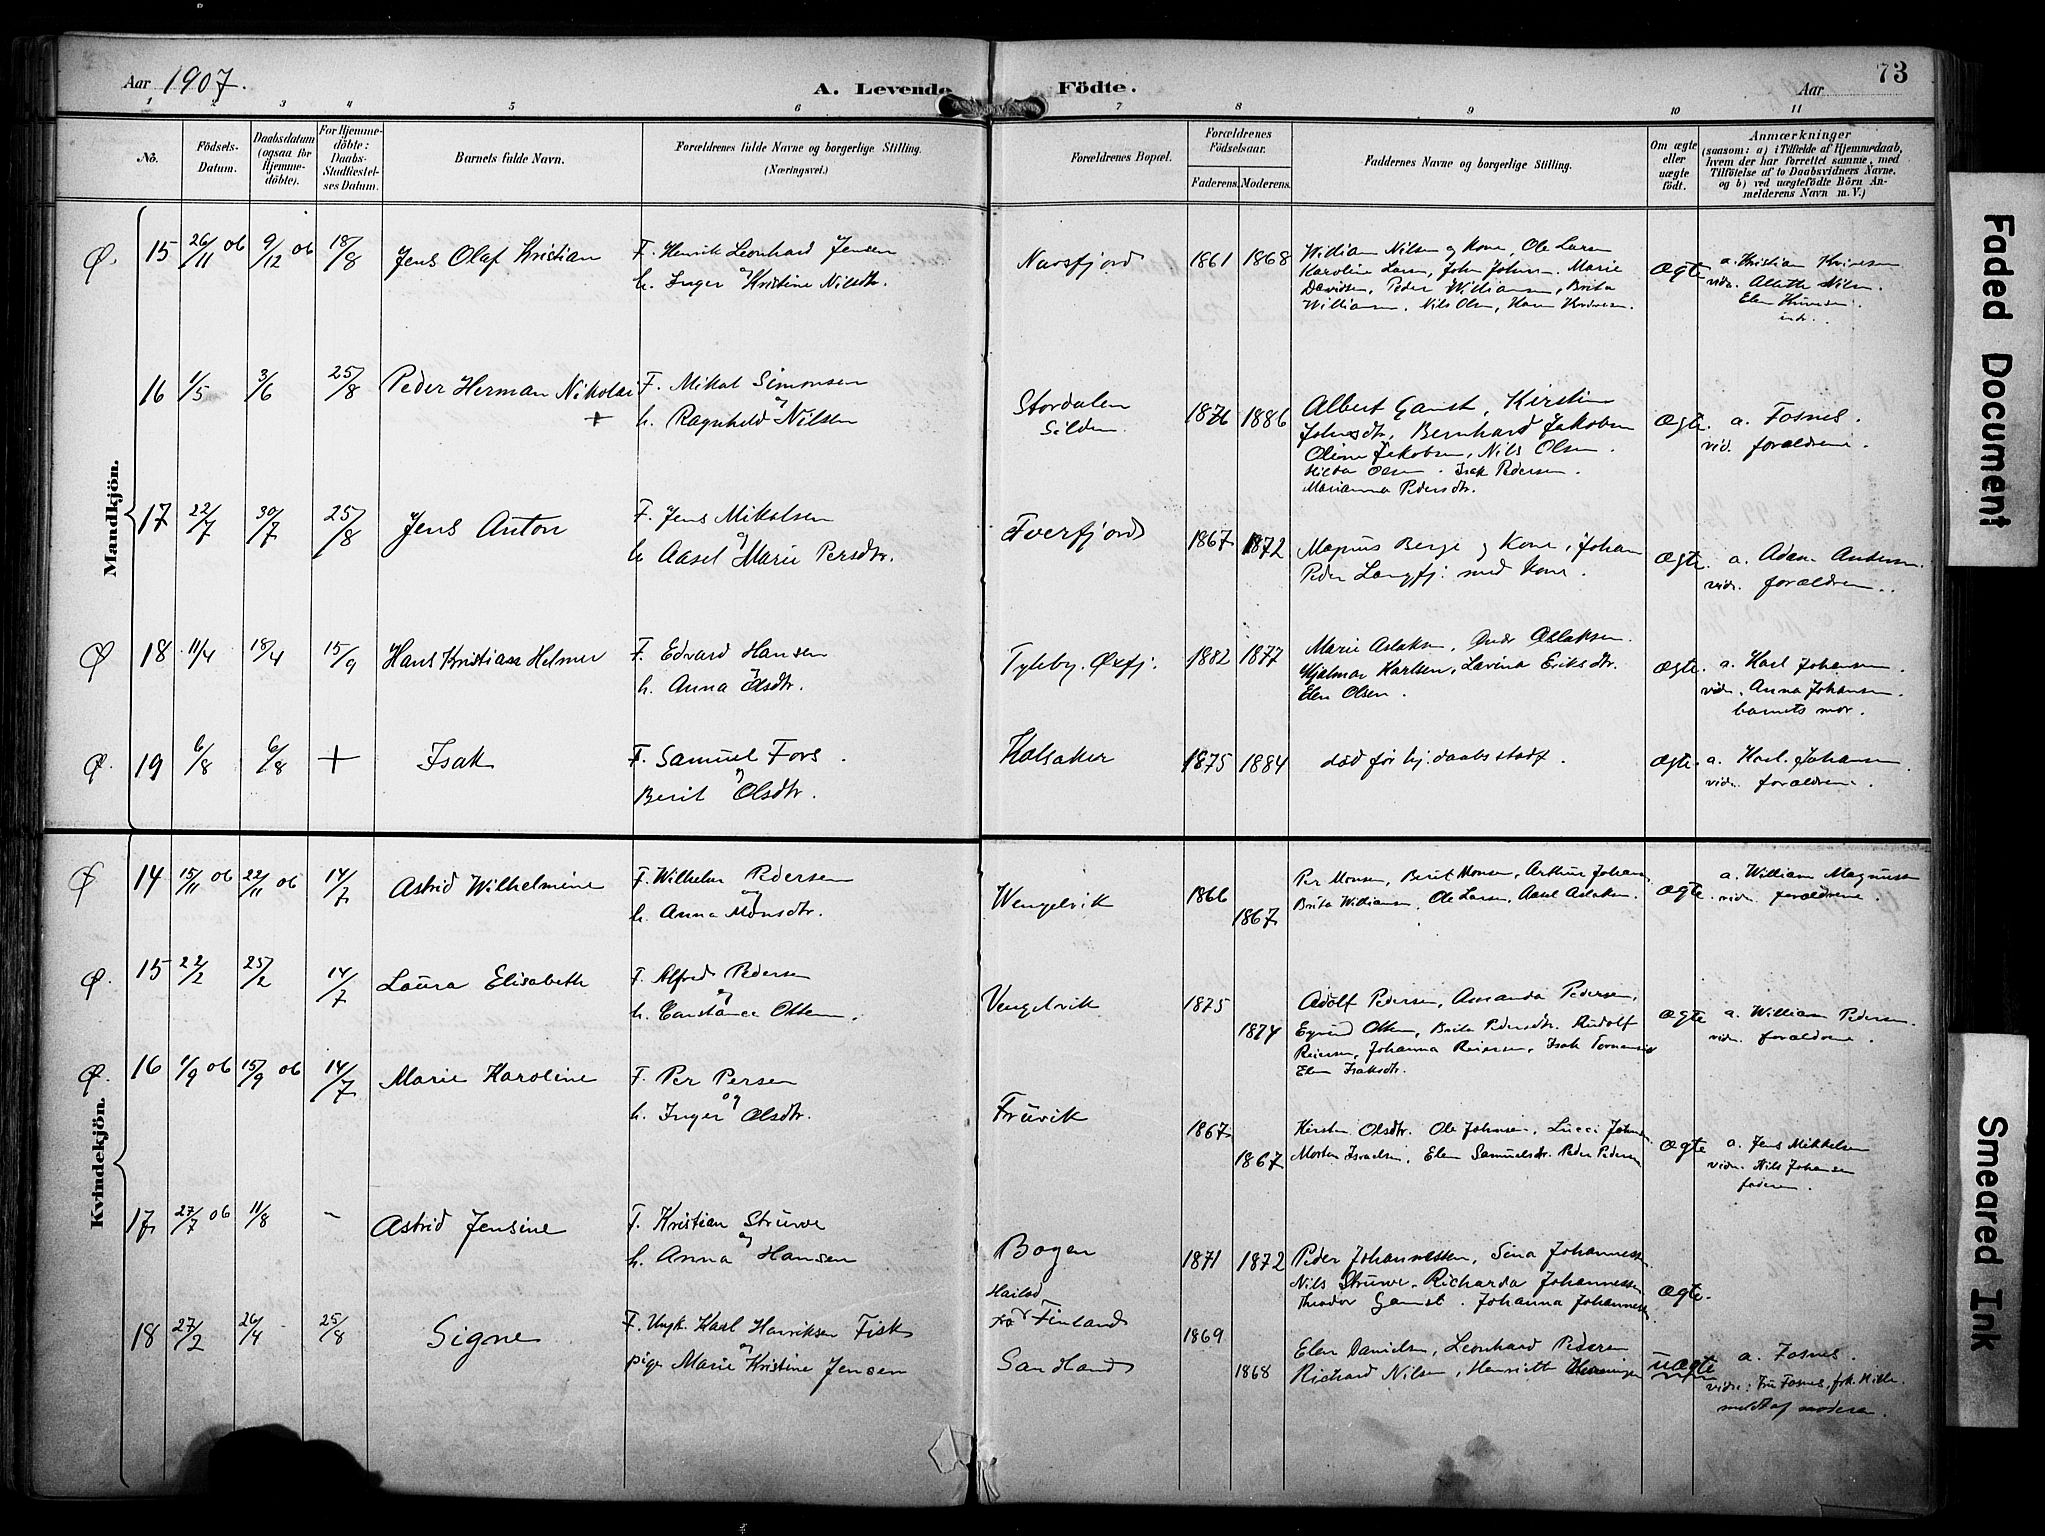 Aar 1907.
A. Levende Födte.
73
Aar
1 2 3 4 5 6 7 8 9 10 11
No.
Födsels-Datum.
Daabsdatum (ogsaa för Hjemme-döbte).
For Hjemme-döbte: Daabs-Stadfæstel-ses Datum.
Barnets fulde Navn.
Forældrenes fulde Navne og borgerlige Stilling.
(Næringsvei.)
Forældrenes Bopæl.
Forældrenes Födselsaar.
Faderens. Moderens.
Faddernes Navne og borgerlige Stilling.
Om ægte eller uægte födt.
Anmærkninger
(saasom: a) i Tilfælde af Hjemmedaab, hvem der har forrettet samme, med Tilföielse af to Daabsvidners Navne, og b) ved uægtefödte Börn An-melderens Navn m. V.)
Mandkjön.
Ø. 15 26/11 06 9/12 06 18/8 Jens Olaf Kristian
F. Henrik Leonhard Jensen
og
h. Inger Kristine Nilsdtr.
Navsfjord 1861 1868
William Nilsen og Kone, Ole Larsen
Karoline Larsen, John Johns. Marie
Davidsen, Peder Williamsen, Brita
Williamsen. Nils Olsen, Hans
Ægte
a. Kristian
vidn. Nilsen.
Elen
16 1/5 3/6 25/8 Peder Herman Nikolai +
F. Mikal Simonsen
og
h. Ragnhild Nilsen
Stordalen
Silden 1876 1886
Albert Gamst, Kirstine
Johnsdtr, Bernhard Jakobsen
Oline Jakobsen, Nils Olsen.
Olsen. Isak Pedersen.
Marianna Pedersdtr.
Ægte.
a. Fosnes.
vid. forældrene.
17 22/7 30/7 25/8 Jens Anton
F. Jens Mikalsen
og
h. Aasel Marie Persdtr.
Tverfjord 1867 1872
Magnus Berge og Kone, Johan
Peder Langfj. med Kone.
Ægte.
a. Adam Andersen.
vidn. forældrene.
Ø 18 11/4 18/4 15/9 Hans Kristian Helmer
F. Edvard Hansen
og
h. Anna Olsdtr.
Tyleby. Øxfj. 1882 1877
Marie Aslaksen, Andr Aslaksen.
Hjalmar Karlsen, Lavina Eriksdtr.
Elen Olsen.
Ægte.
a. Karl Johansen.
vidn. Anna Johansen.
barnets mor.
Ø. 19 6/8 6/8 + Isak
F. Samuel Fors.
og
Berit Olsdtr.
Kalsaker 1875 1884
død før hj. daabs stadf.
Ægte.
a. Karl Johansen.
vidn. forældrene.
Kvindekjön.
Ø 14 15/11 06 22/11 06 14/7 Astrid Wilhelmine
F. Wilhelm Pedersen
og
h. Anna Monsdtr.
Wengelvik 1866 1867
Per Monsen, Berit Monsen, Arthur Johans.
Brita Williamsen, Ole Larsen, Aasel Aslaksen.
Ægte.
a. William Magnussen
vidn. forældrene.
Ø. 15 22/2 25/2 14/7 Laura Elisabeth
F. Alfred Pedersen
og
h. Constance Olsen.
Vengelvik 1875 1874
Adolf Pedersen, Amanda Pedersen,
Olsen, Brita Pedersdtr. Rudolf
Reiersen, Johanna Reiersen, Isak
Elen Isaksdtr.
Ægte
a. William Pedersen.
vidn. forældrene.
Ø. 16 1/9 06 15/9 06 14/7 Marie Karoline
F. Per Persen
og
h. Inger Olsdtr.
Fruvik 1867 1867
Kirsten Olsdtr. Ole Johnsen, Lucci Johnsen
Morten Israelsen, Elen Samuelsdtr. Peder Pedersen
Ægte
a. Jens Mikkelsen
vidn. Nils Johansen
faderen.
17 27/7 06 11/8 - Astrid Jensine
F. Kristian Struwe
og
h. Anna Hansen
Bogen 1871 1872
Peder Johannessen, Sina Johannessen
Nils Struwe, Richarda Johannessen
Theodor Gamst. Johanna Johannessen
Ægte.
18 27/2 26/4 25/8 Signe
F. Ungk. Karl Henriksen Fisk
og
pige Marie Kristine Jensen
fra Finland
Sandland 1869 1868
Elen Danielsen, Leonhard Pedersen
Richard Nilsen, Henriette Henningsen
uægte
a. Fosnes.
vidn: Fru Fosnes, frk.
meldt af moderen.
Faded Document
Smeared Ink